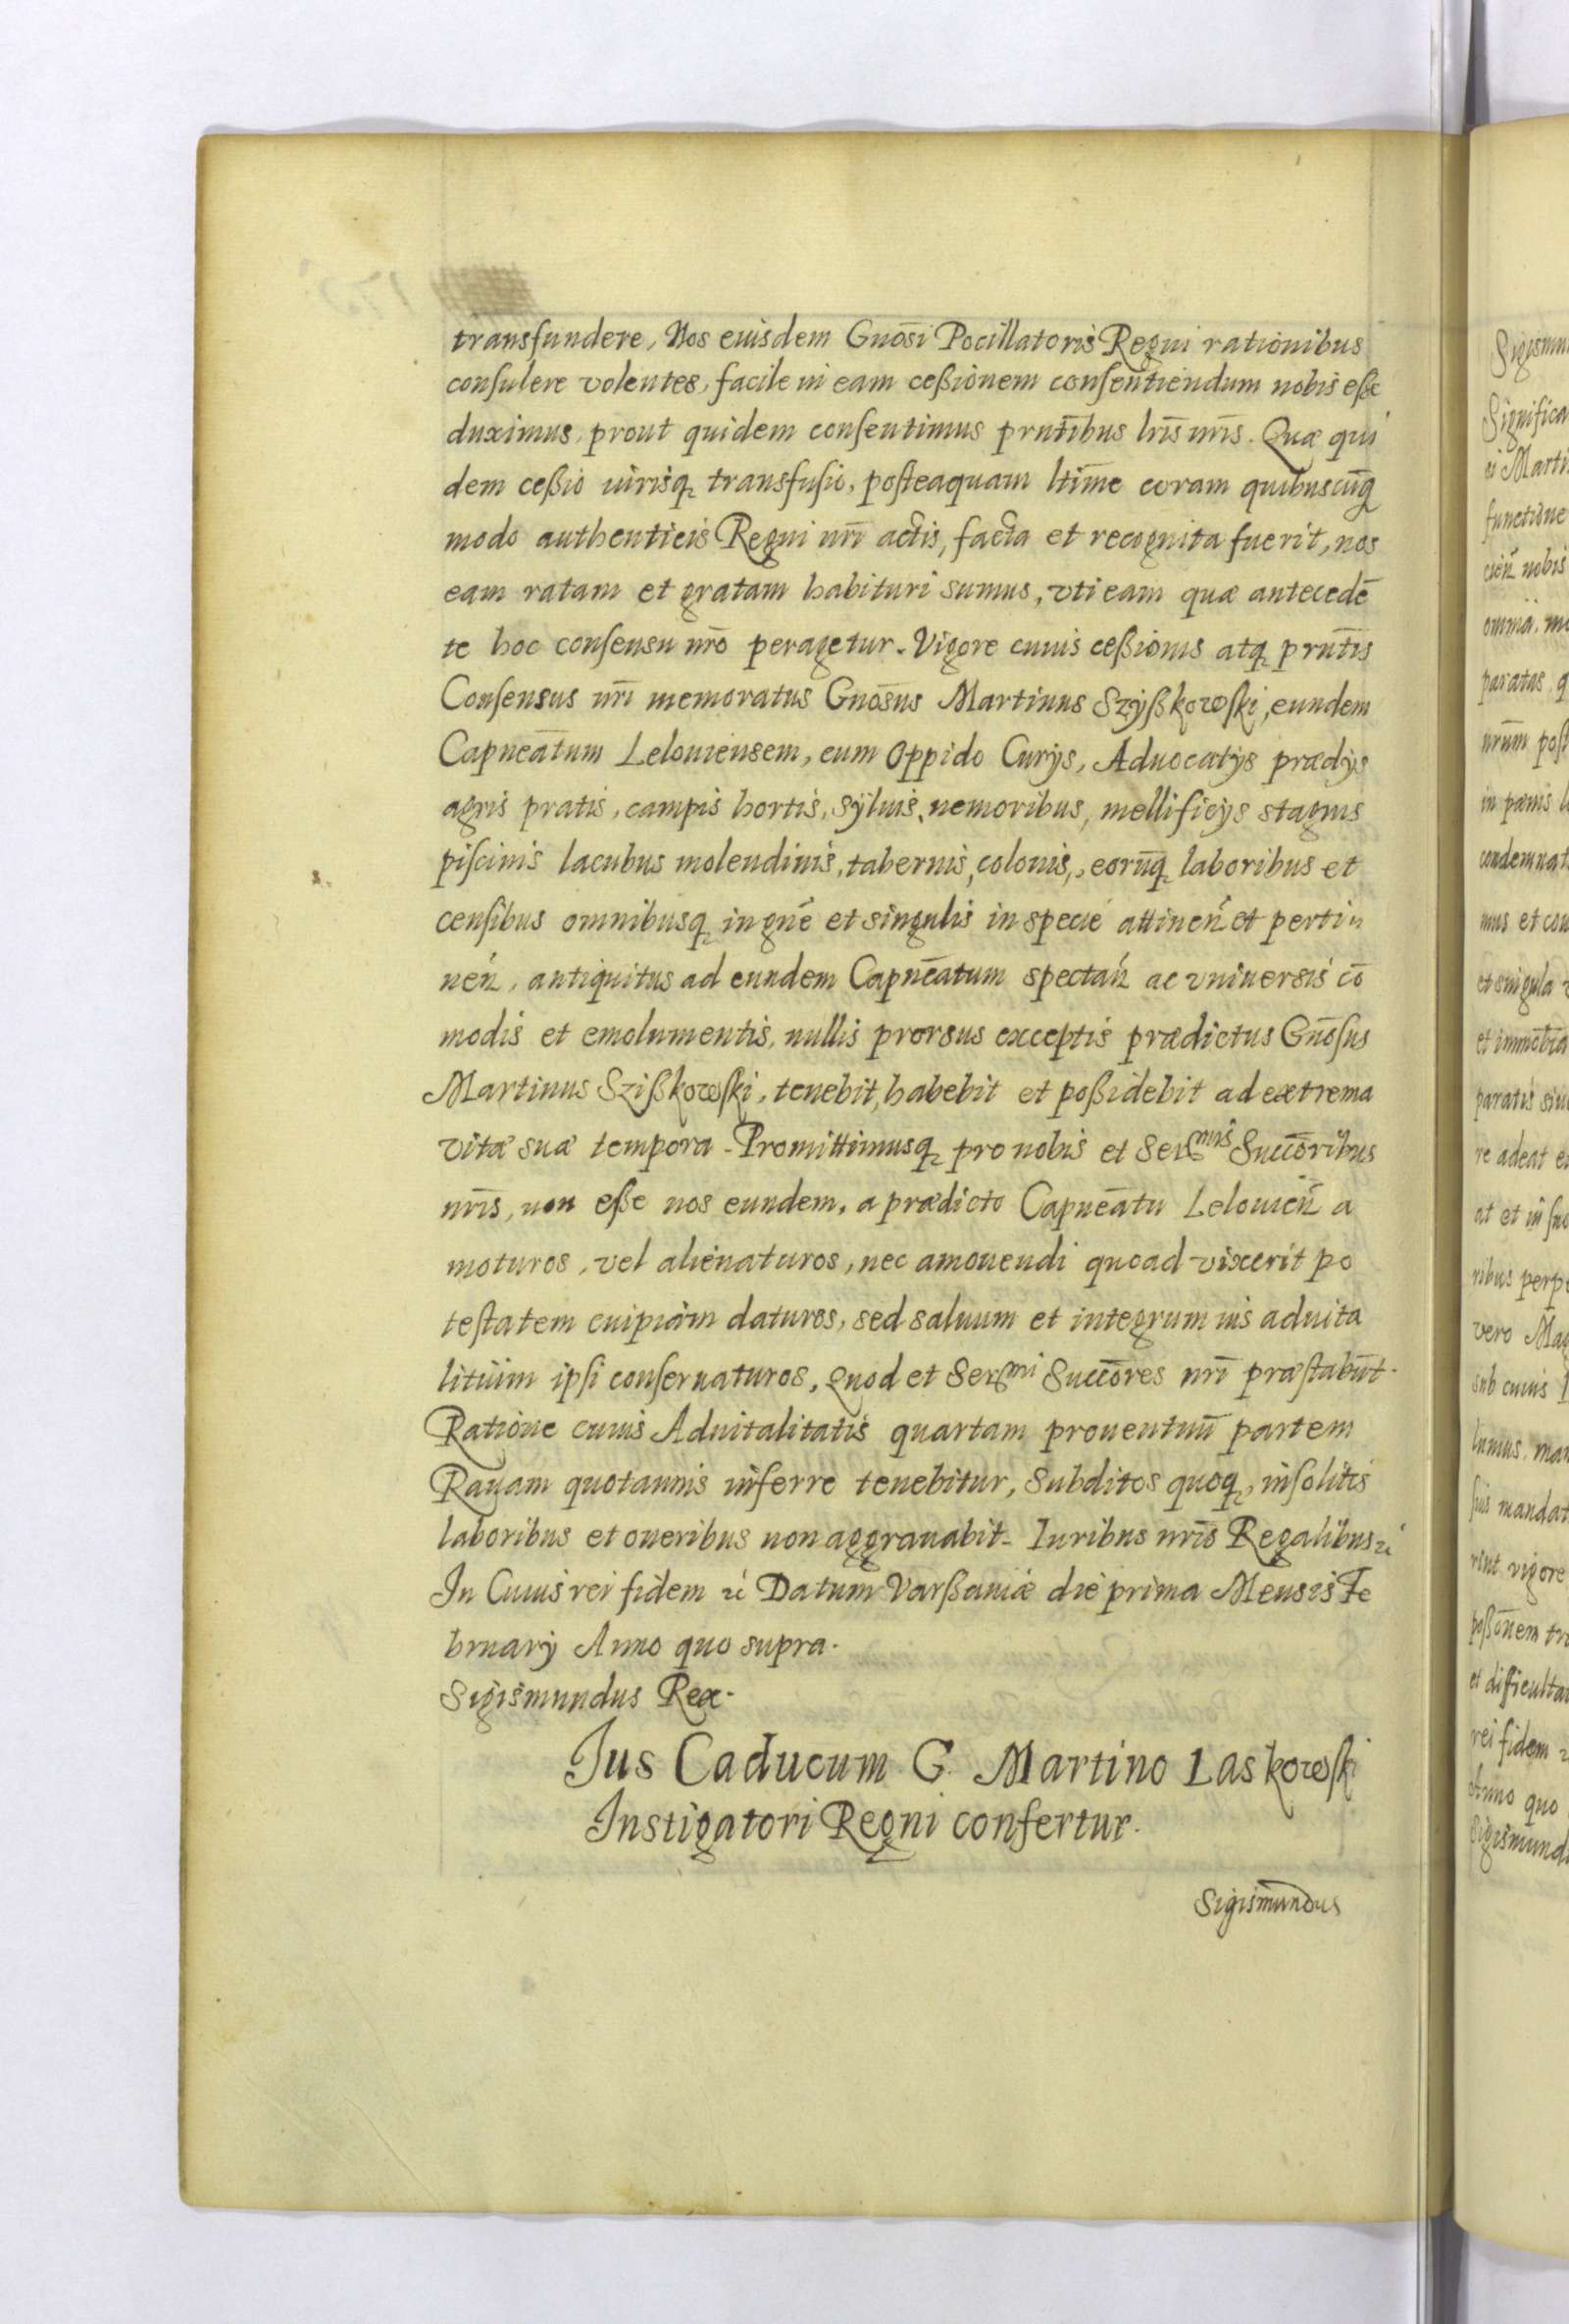 transfundere, Nos euisdem Gnōsi Pocillatoris Regni rationibus
consulere volentes, facile in eam ceßionem consentiendum nobis eße
duximus, prout quidem consentimus prntībus lrīs nrīs. Quæ qui
dem ceßio iurisq transfusio, posteaquam ltīme coram quibuscūq
modo authenticis Regni nrī actis, facta et recognita fuerit, nos
eam ratam et gratam habituri sumus, vti eam quæ antecedē
te hoc consensu nrō peragetur. Vigore cuius ceßionis atq prntīs
Consensus nrī memoratus Gnōsus Martinus Szyßkowski, eundem
Capneātum Lelouiensem, cum Oppido Curijs, Aduocatijs prædijs
agris pratis, campis hortis, syluis, nemoribus, mellificijs stagnis
piscinis lacubus molendinis, tabernis, colonis, eorūq laboribus et
censibus omnibusq in gnē et singulis in specie attinen̄ et perti
nen̄, antiquitus ad eundem Capneātum spectan̄ ac vniuersis cō
modis et emolumentis, nullis prorsus exceptis prædictus Gnōsus
Martinus Szißkowski, tenebit, habebit et poßidebit ad extrema
vitæ suæ tempora. Promittimusq pro nobis et Serᵐⁱˢ Succōribus
nrīs, non eße nos eundem, a prædicto Capneātu Lelouien̄ a
moturos, vel alienaturos, nec amouendi quoad vixerit po
testatem cuipiam daturos, sed saluum et integrum ius aduita
litium ipsi conseruaturos, Quod et Serᵐⁱ Succōres nrī præstabūt.
Ratione cuius Aduitalitatis quartam prouentuū partem
Rauam quotannis inferre tenebitur, Subditos quoq, insolitis
laboribus et oneribus non aggrauabit. Iuribus nrīs Regalibus &
In Cuius rei fidem & Datum Varßauiæ die prima Mensis Fe
bruarij Anno quo supra.
Sigismundus Rex.
Jus Caducum G. Martino Laskowski
Instigatori Regni confertur.
Sigismundus
Sigismun
Significa
functione
nobis
omnia
paratas q
nrūm post
condemnat
mus et con
et singula
paratis siue
re adeat
ribus perp
vero Mag
sub cuius
mandat
rint vigore
et difficulta
rei fidem
Anno quo
Sigismund